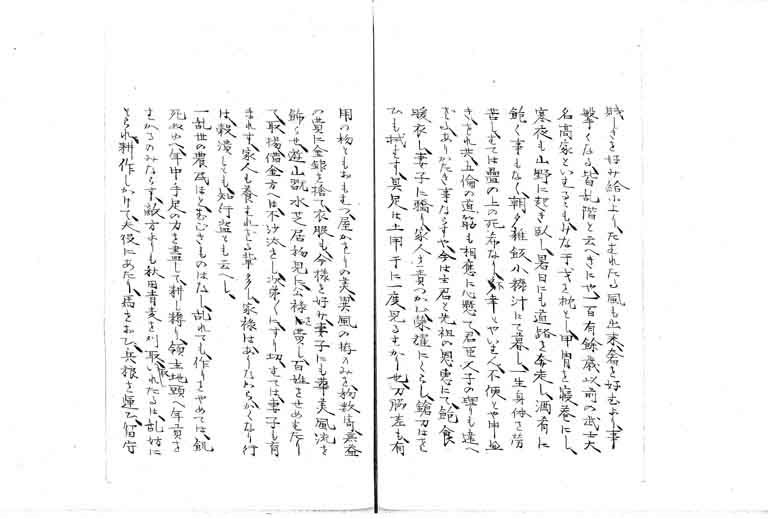 賊しきを好み給ふより、たはれたる風も出来、奢を好むより、事
繋くなる、皆乱階と云へきにや、一百有餘歳以前の武士大
名高家といへるともみな干戈を枕とし、甲冑を寝巻にし、
寒夜も山野に起き臥し、暑日にも道路を奔走し、酒肴に
飽く事もなく、朝夕雑飯小糠汁にて暮し、一生身体を労
苦しむては畳の上の死希なり、不幸とやいはん、不便とや申
きされ共五倫の道筋も相應に心懸て、君臣父子の理りも違へ
ありかたき事ならすや、今は士君と先祖の恩恵にて、飽食
暖衣し、妻子に驕り、家人を責つかひ、栄耀にくらし、鎗刀
ひも拭はす、具足は土用干に一度見るはかり也、刀脇差も有
用の物ともおもはす、屋かさりの美、異風の拵のみを物数寄、無益
の費に金銀を捨て、衣服も今様を好み、妻子にも華美風流を
飾らせ、遊山翫水芝居物見に公禄を費し、百姓をせめはたり
て、取揚借金方へは不沙汰をし、次第にすり切ては、妻子も育
まれす、家人も養まれさる輩多し、家禄はありなからかくなり行
は、穀潰しとも知行盗とも云へし、
一乱世の農民ほとむこきものはなし、乱れても作りをやめては、飢
死ぬゆへ、年中手足の力を盡して、耕し耨り、領主地頭へ年貢を
はかるのみならす、敵方よりも秋田青麦を刈取、いれたは、乱妨に
とられ、耕作しかけて、夫役にあたり、馬をおひ、兵粮を運ひ、留守